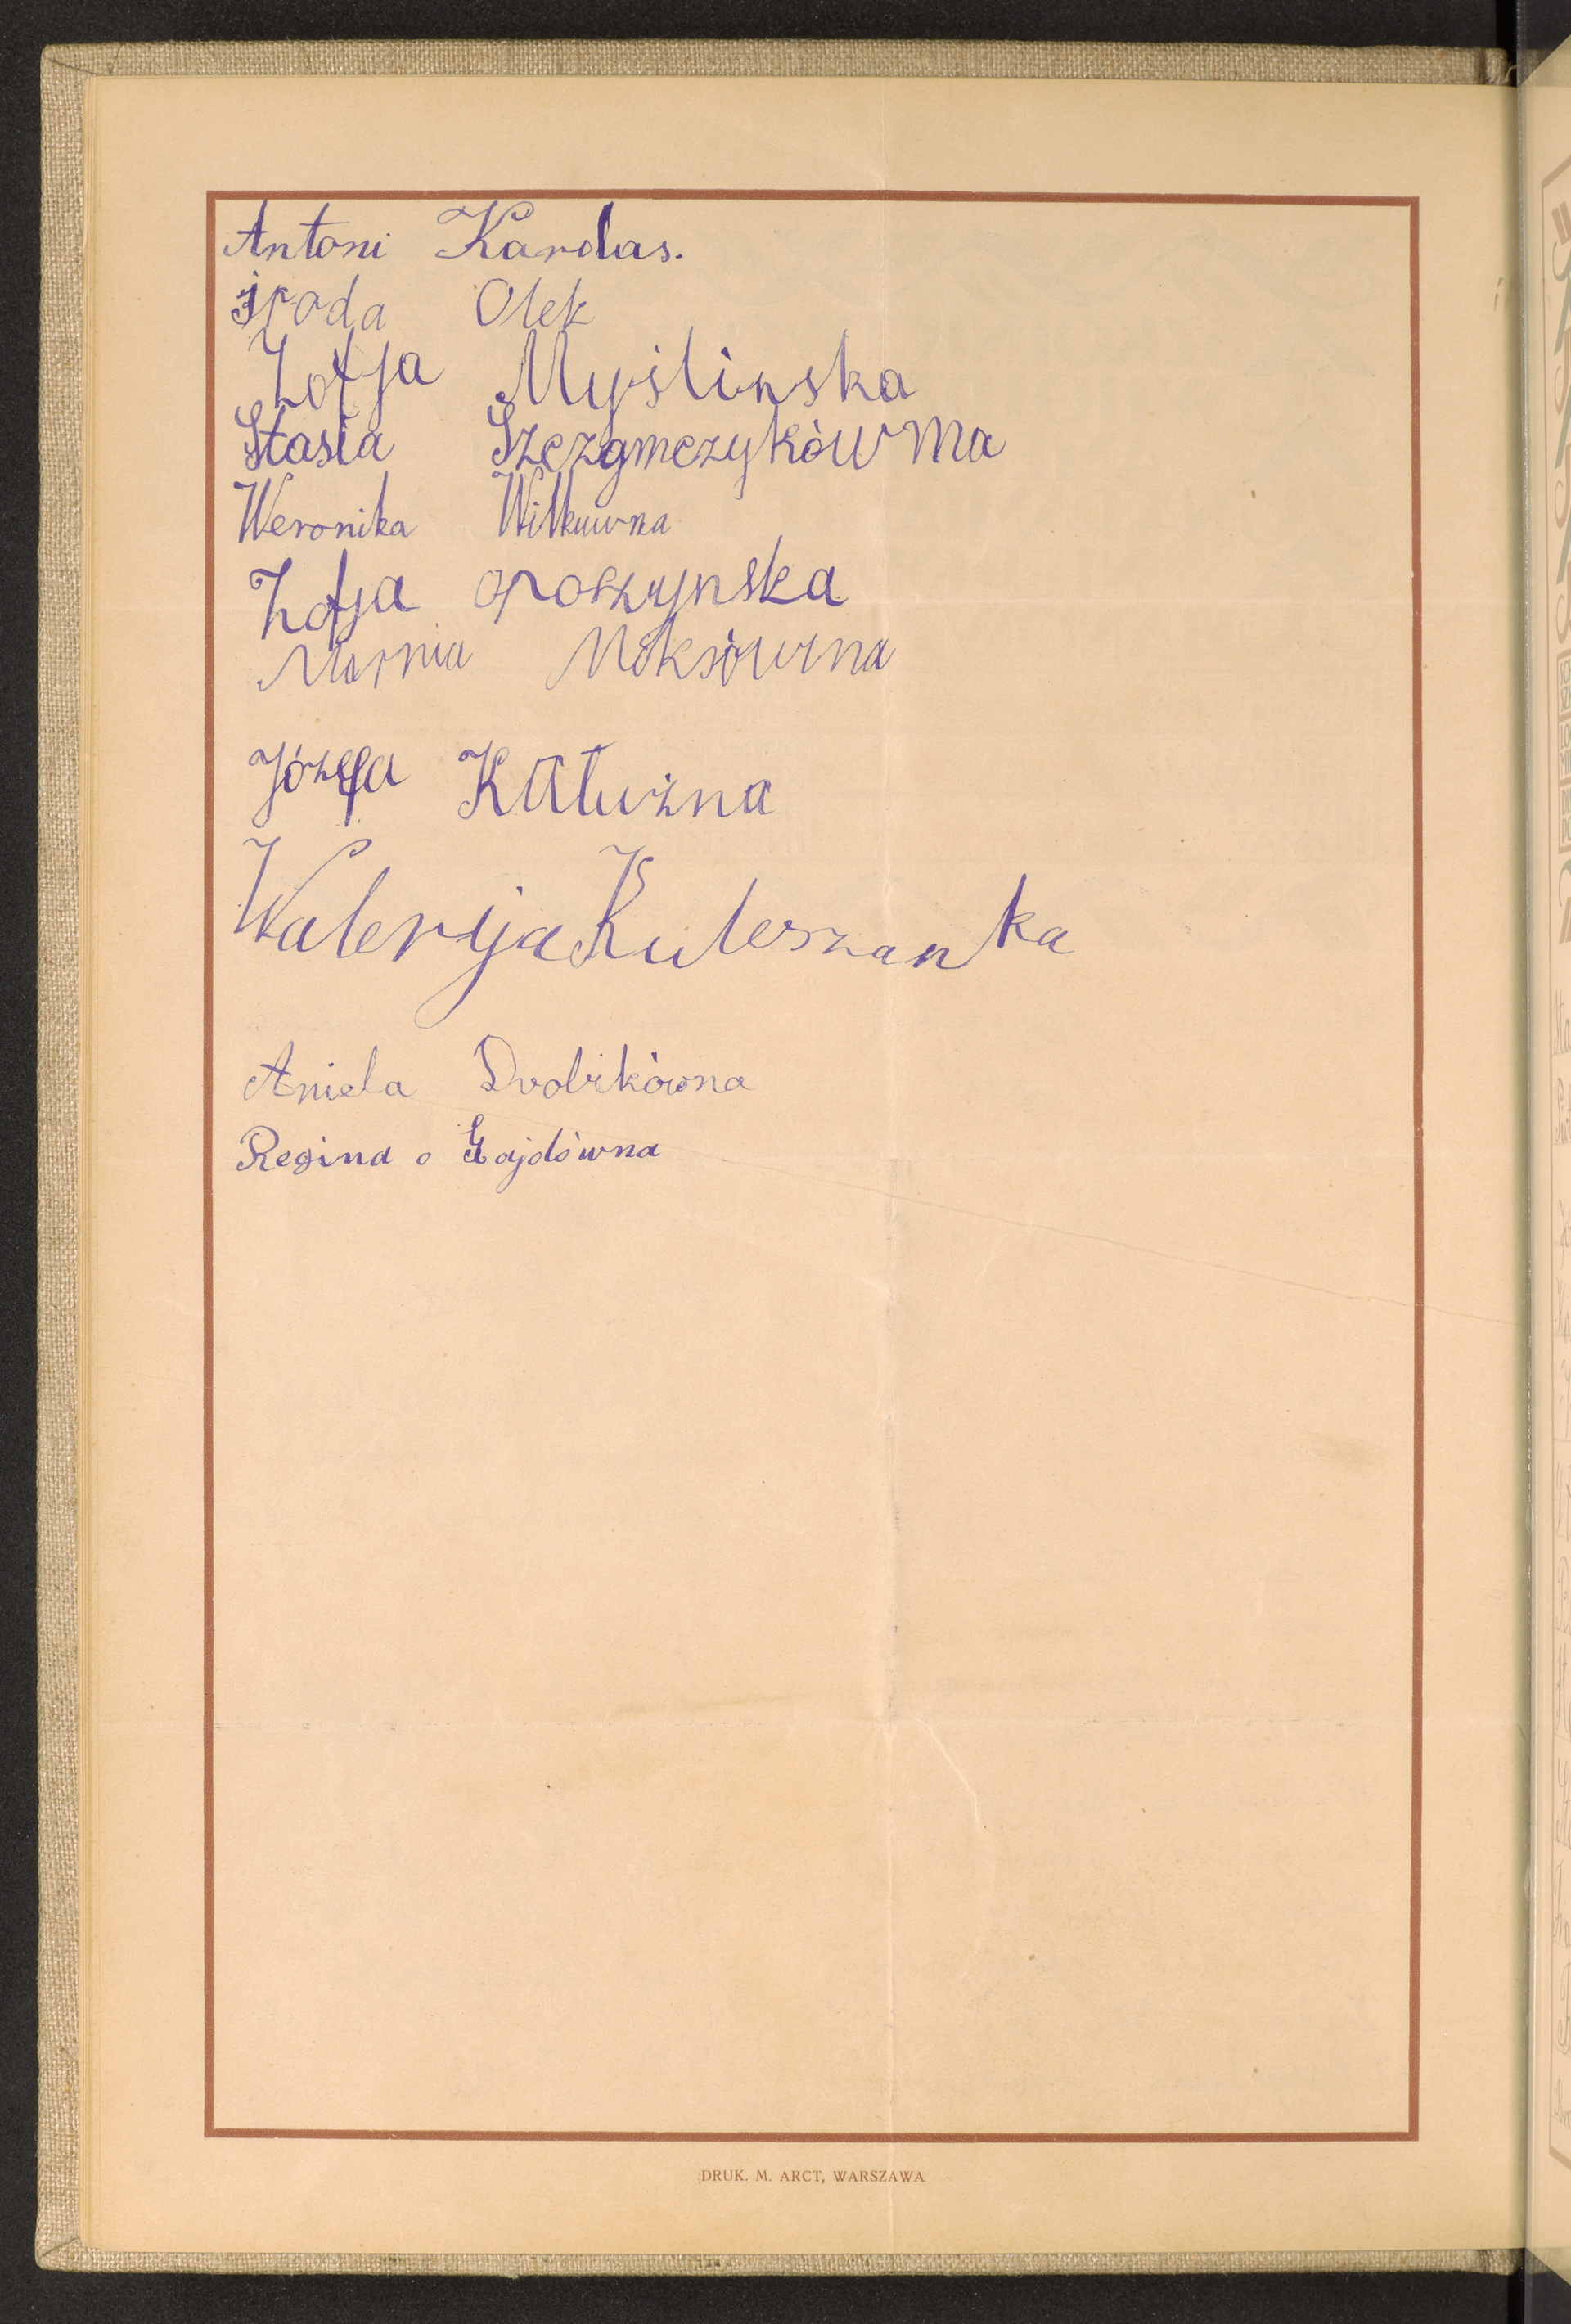 Antoni Kardas.
środa Olek
Zofja Myślinska
Stasia Szczęmczykówma
Weronika Wilkuwna
Zofja oposzynska
Marnia Noksówna
Józefa Kałużna
Walerja Kuleszanka
Aniela Drobikówna
Regina Gajdówna
DRUK. M. ARCT, WARSZAWA